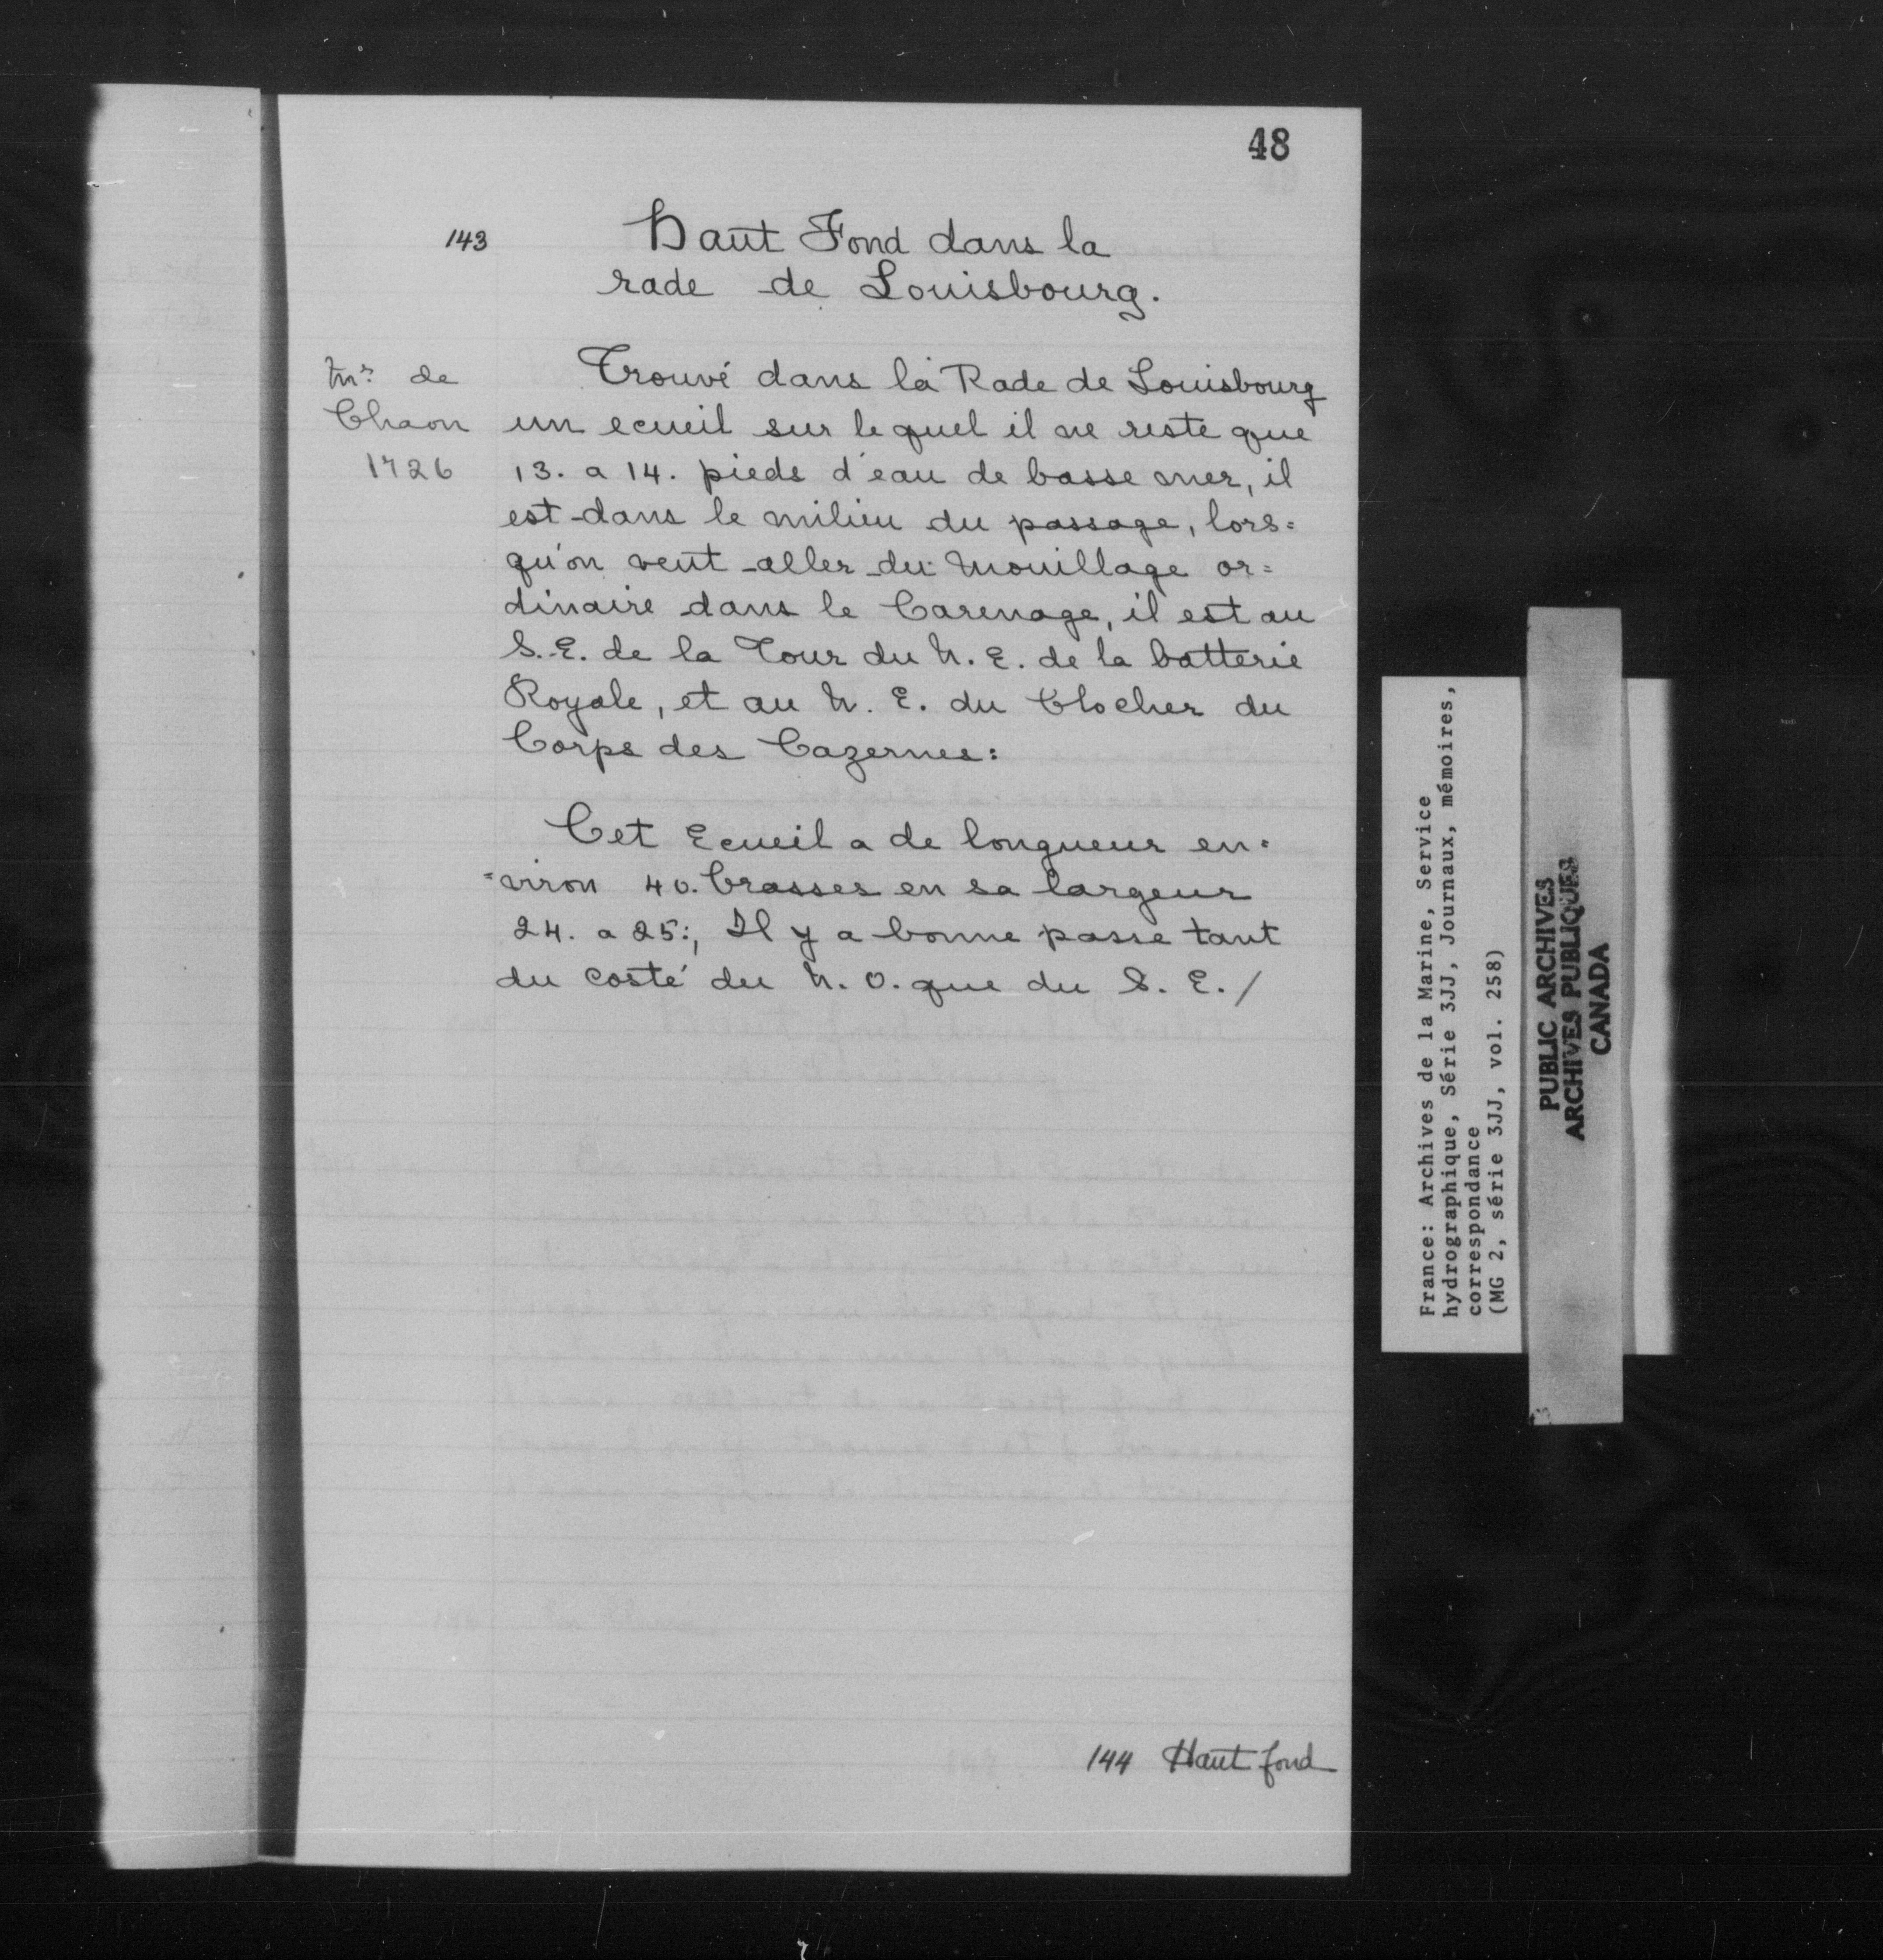 48
143 Haut Fond dans la
rade de Louisbourg.
Mr. de
Chaon
1726
Trouvé dans la Rade de Louisbourg
un ecueil sur lequel il ne reste que
13. a 14. pieds d'eau de basse mer, il
est dans le milieu du passage, lors=
qu'on veut aller du Mouillage or=
dinaire dans le Carenage, il est au
S.E. de la Tour du N.E. de la batterie
Royale, et au N.E. du Clocher du
Corps des Cazernes:
Cet Ecueil a de longueur en=
=viron 40. brasses en sa largeur
24. a 25:, Il y a bonne passe tant
du costé du N.O. que du S.E./
144 Haut fond
France: Archives de la Marine, Service
hydrographique, Série 3JJ, Journaux, mémoires,
correspondance
(MG 2, série 3JJ, vol. 258)
PUBLIC ARCHIVES
ARCHIVES PUBLIQUES
CANADA